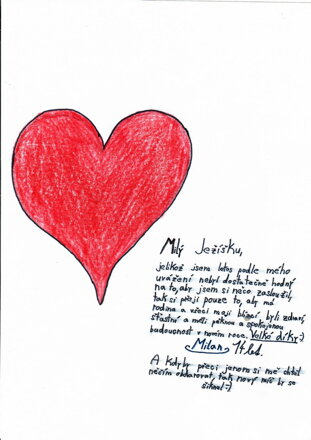 Milý Ježíšku,
jelikož jsem letos podle mého
uvážení nebyl dostatečně hodný
na to, aby jsem si něco zasloužil,
tak si přeji pouze to, aby má
rodina a všeci moji blízcí, byli zdraví,
šťastní a měli pěknou a spokojenou
budoucnost v novém roce. Velké díky :)
Milan 14 let.
A kdyby přeci janom si mě chtěl
něčím obdarovat, tak nový míč by se
šiknul =)